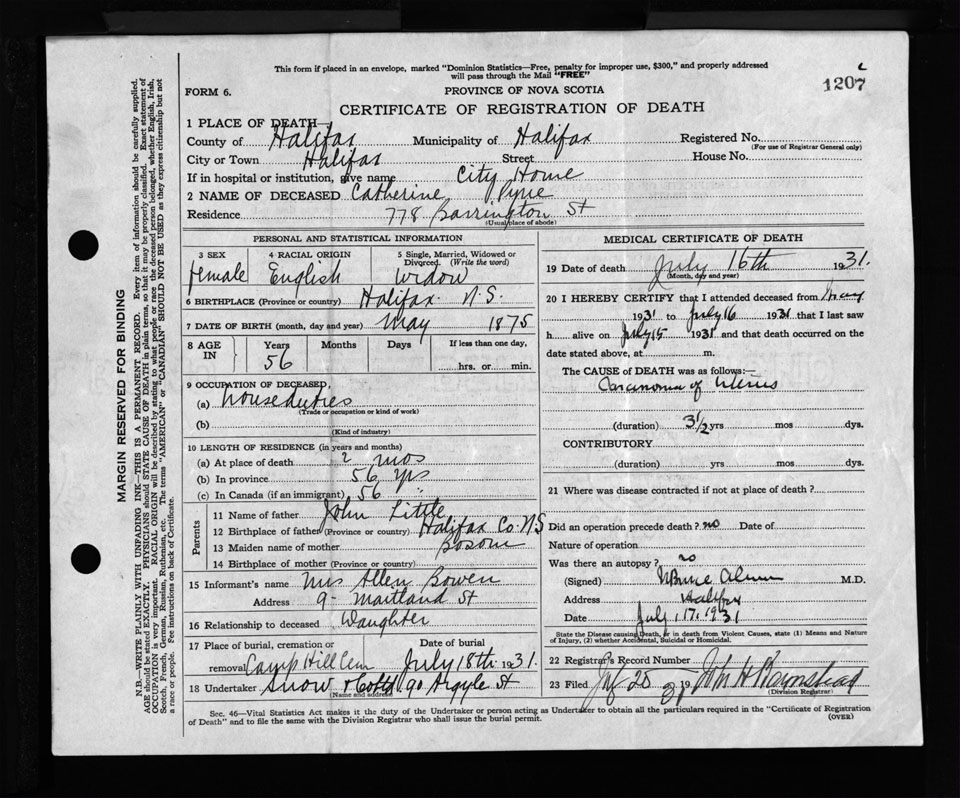 This form if placed in an envelope, marked "Dominion Statistics—Free, penalty for improper use, $300," and properly addressed
will pass through the Mail "FREE"
1207
FORM 6.
PROVINCE OF NOVA SCOTIA
CERTIFICATE OF REGISTRATION OF DEATH
1 PLACE OF DEATH—
County of Halifax Municipality of Halifax Registered No.
(For use of Registrar General only)
City or Town Halifax Street House No.
If in hospital or institution, give name City Home
2 NAME OF DECEASED Catherine
Residence 778 Barrington St
(Usual place of abode)
PERSONAL AND STATISTICAL INFORMATION
3 SEX 4 RACIAL ORIGIN 5 Single, Married, Widowed or
Divorced. (Write the word)
female English widow
6 BIRTHPLACE (Province or country) Halifax N.S.
7 DATE OF BIRTH (month, day and year) May 1875
8 AGE IN Years Months Days If less than one day,
56 hrs. or min.
9 OCCUPATION OF DECEASED,
(a) houseduties
(Trade or occupation or kind of work)
(b)
(Kind of industry)
10 LENGTH OF RESIDENCE (in years and months)
(a) At place of death 2 mos
(b) In province 56 yrs
(c) In Canada (if an immigrant) 56
Parents
11 Name of father John Little
12 Birthplace of father (Province or country) Halifax Co. N.S
13 Maiden name of mother
14 Birthplace of mother (Province or country)
15 Informant's name Mrs Allen Bowen
Address 9- Maitland St
16 Relationship to deceased Daughter
17 Place of burial, cremation or Date of burial
removal Camp Hill Cem July 18th 1931.
18 Undertaker Snow & Co Ltd 90 Argyle St
Name and address
MEDICAL CERTIFICATE OF DEATH
19 Date of death July 16th 1931.
(Month, day and year)
20 I HEREBY CERTIFY that I attended deceased from May
1931 to July 16 1931 that I last saw
h alive on July 15 1931 and that death occurred on the
date stated above, at m.
The CAUSE of DEATH was as follows:—
Carcinoma of Uterus
(duration) 3 1/2 yrs mos dys.
CONTRIBUTORY
(duration) yrs mos dys.
21 Where was disease contracted if not at place of death?
Did an operation precede death? no Date of
Nature of operation
Was there an autopsy? no
(Signed) M.D.
Address Halifax
Date July 17. 1931
State the Disease causing Death, or in death from Violent Causes, state (1) Means and Nature
of Injury, (?) whether Accidental, Suicidal or Homicidal.
22 Registrar's Record Number
23 Filed 20 19 John H Barnstead
(Division Registrar)
Sec. 46—Vital Statistics Act makes it the duty of the Undertaker or person acting as Undertaker to obtain all the particulars required in the "Certificate of Registration
of Death" and to file the same with the Division Registrar who shall issue the burial permit.
(OVER)
MARGIN RESERVED FOR BINDING
N.B.—WRITE PLAINLY WITH UNFADING INK—THIS IS A PERMANENT RECORD. Every item of information should be carefully supplied.
AGE should be stated EXACTLY. PHYSICIANS should STATE CAUSE OF DEATH in plain terms, so that it may be properly classified. Exact statement of
OCCUPATION is very important. RACIAL ORIGIN will be described by stating to what people or race the deceased person belonged, whether English, Irish,
Scotch, French, German, Russian, Ruthenian, etc. The terms "AMERICAN" or "CANADIAN" SHOULD NOT BE USED as they express citizenship but not
a race or people. Fee instructions on back of Certificate.